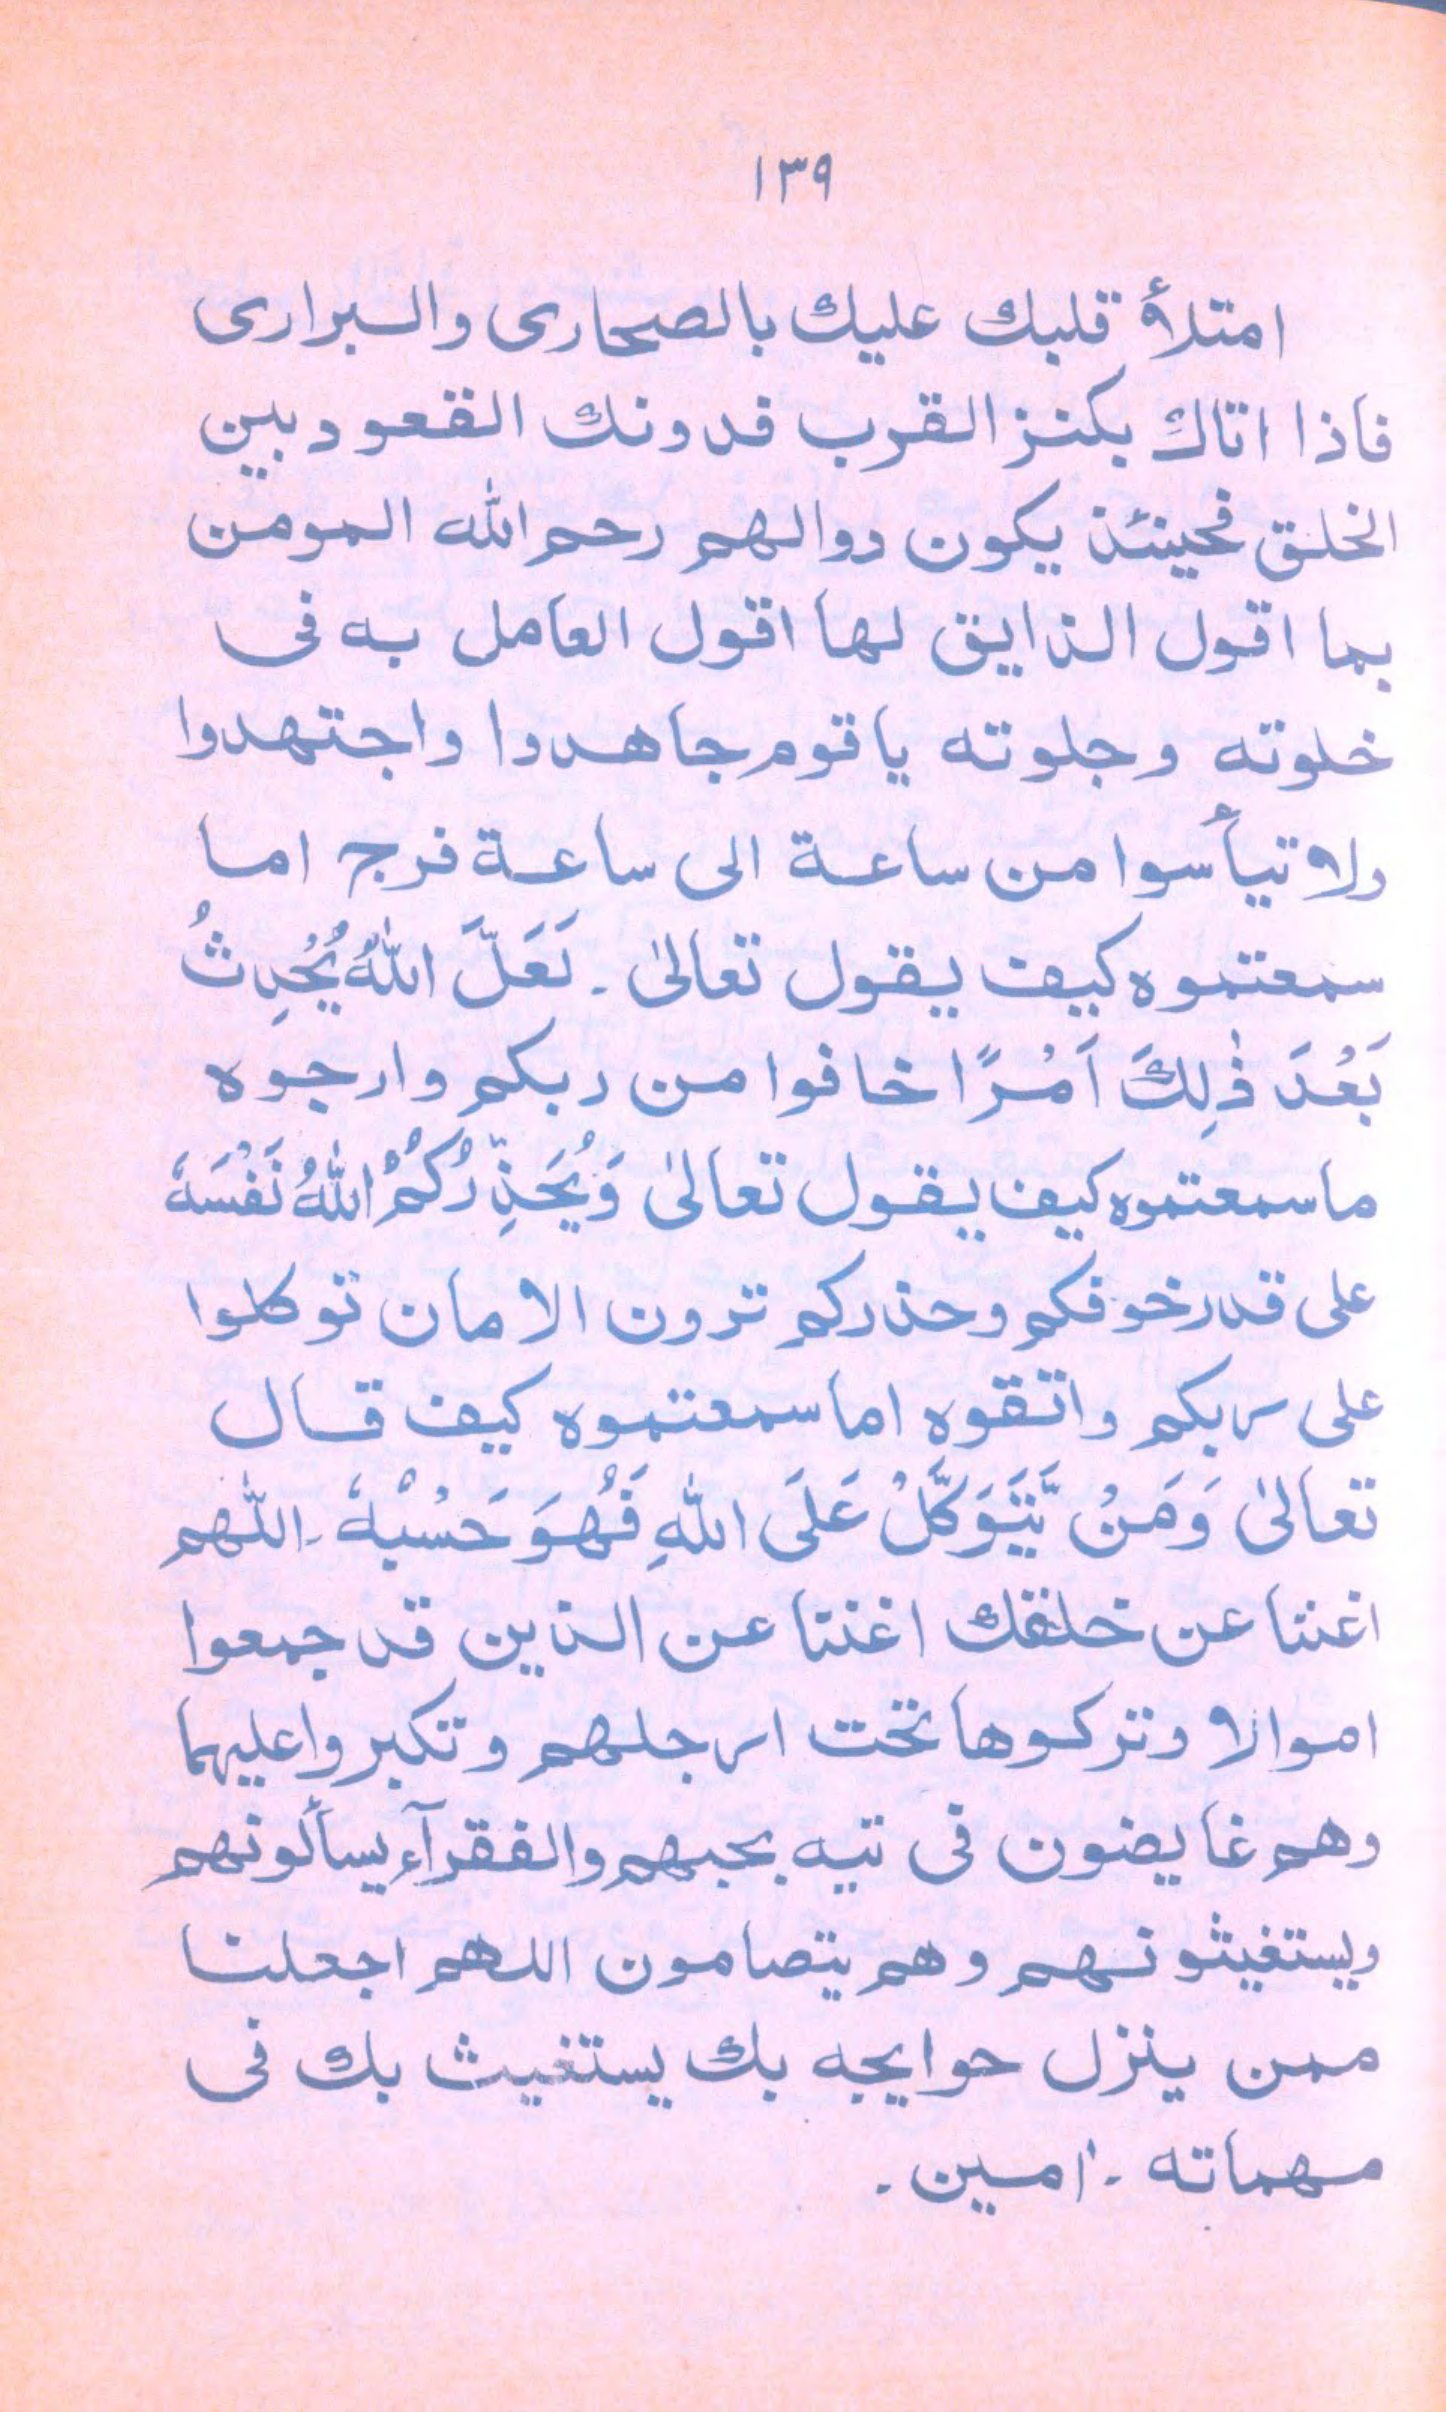 ١٣٩
امتلأ قلبك عليك بالصحارى والبرارى
فاذا اتاك بكنز القرب فدونك القعود بين
الخلق فحينئذ يكون دوالهم رحم الله المومن
بما اقول الذايق لها اقول العامل به فى
خلوته وجلوته ياقوم جاهدوا واجتهدوا
ولا تيأسوا من ساعة الى ساعة فرج اما
سمعتموه كيف يقول تعالىٰ ۔ لَعَلَّ اللّٰهُ يُحْدِثُ
بَعْدَ ذٰلِكَ اَمْرًا خافوا من ربكم وارجوه
ما سمعتموه كيف يقول تعالىٰ وَيُحَذِّرُكُمُ اللّٰهُ نَفْسَهٗ
على قدر خوفكم وحذركم ترون الامان توكلوا
على ربكم واتقوه اما سمعتموه كيف قال
تعالىٰ وَمَنْ يَّتَوَكَّلْ عَلَى اللّٰهِ فَهُوَ حَسْبُهٗ ۔ اللّٰهم
اغننا عن خلقك اغننا عن الذين قد جمعوا
اموالا وتركوها تحت ارجلهم وتكبروا عليهما
وهم غايضون فى تيه بحبهم والفقرآء يسألونهم
ويستغيثونهم وهم يتصامون اللهم اجعلنا
ممن ينزل حوايجه بك يستغيث بك فى
مهماته ۔ اٰمين ۔